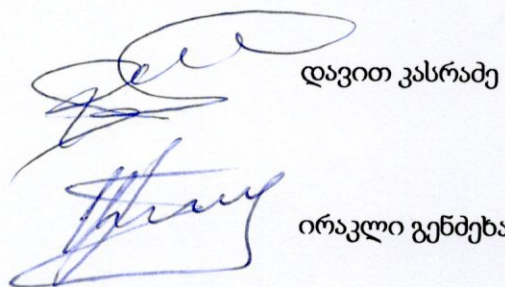 დავით კასრაძე
ირაკლი გენმეხა